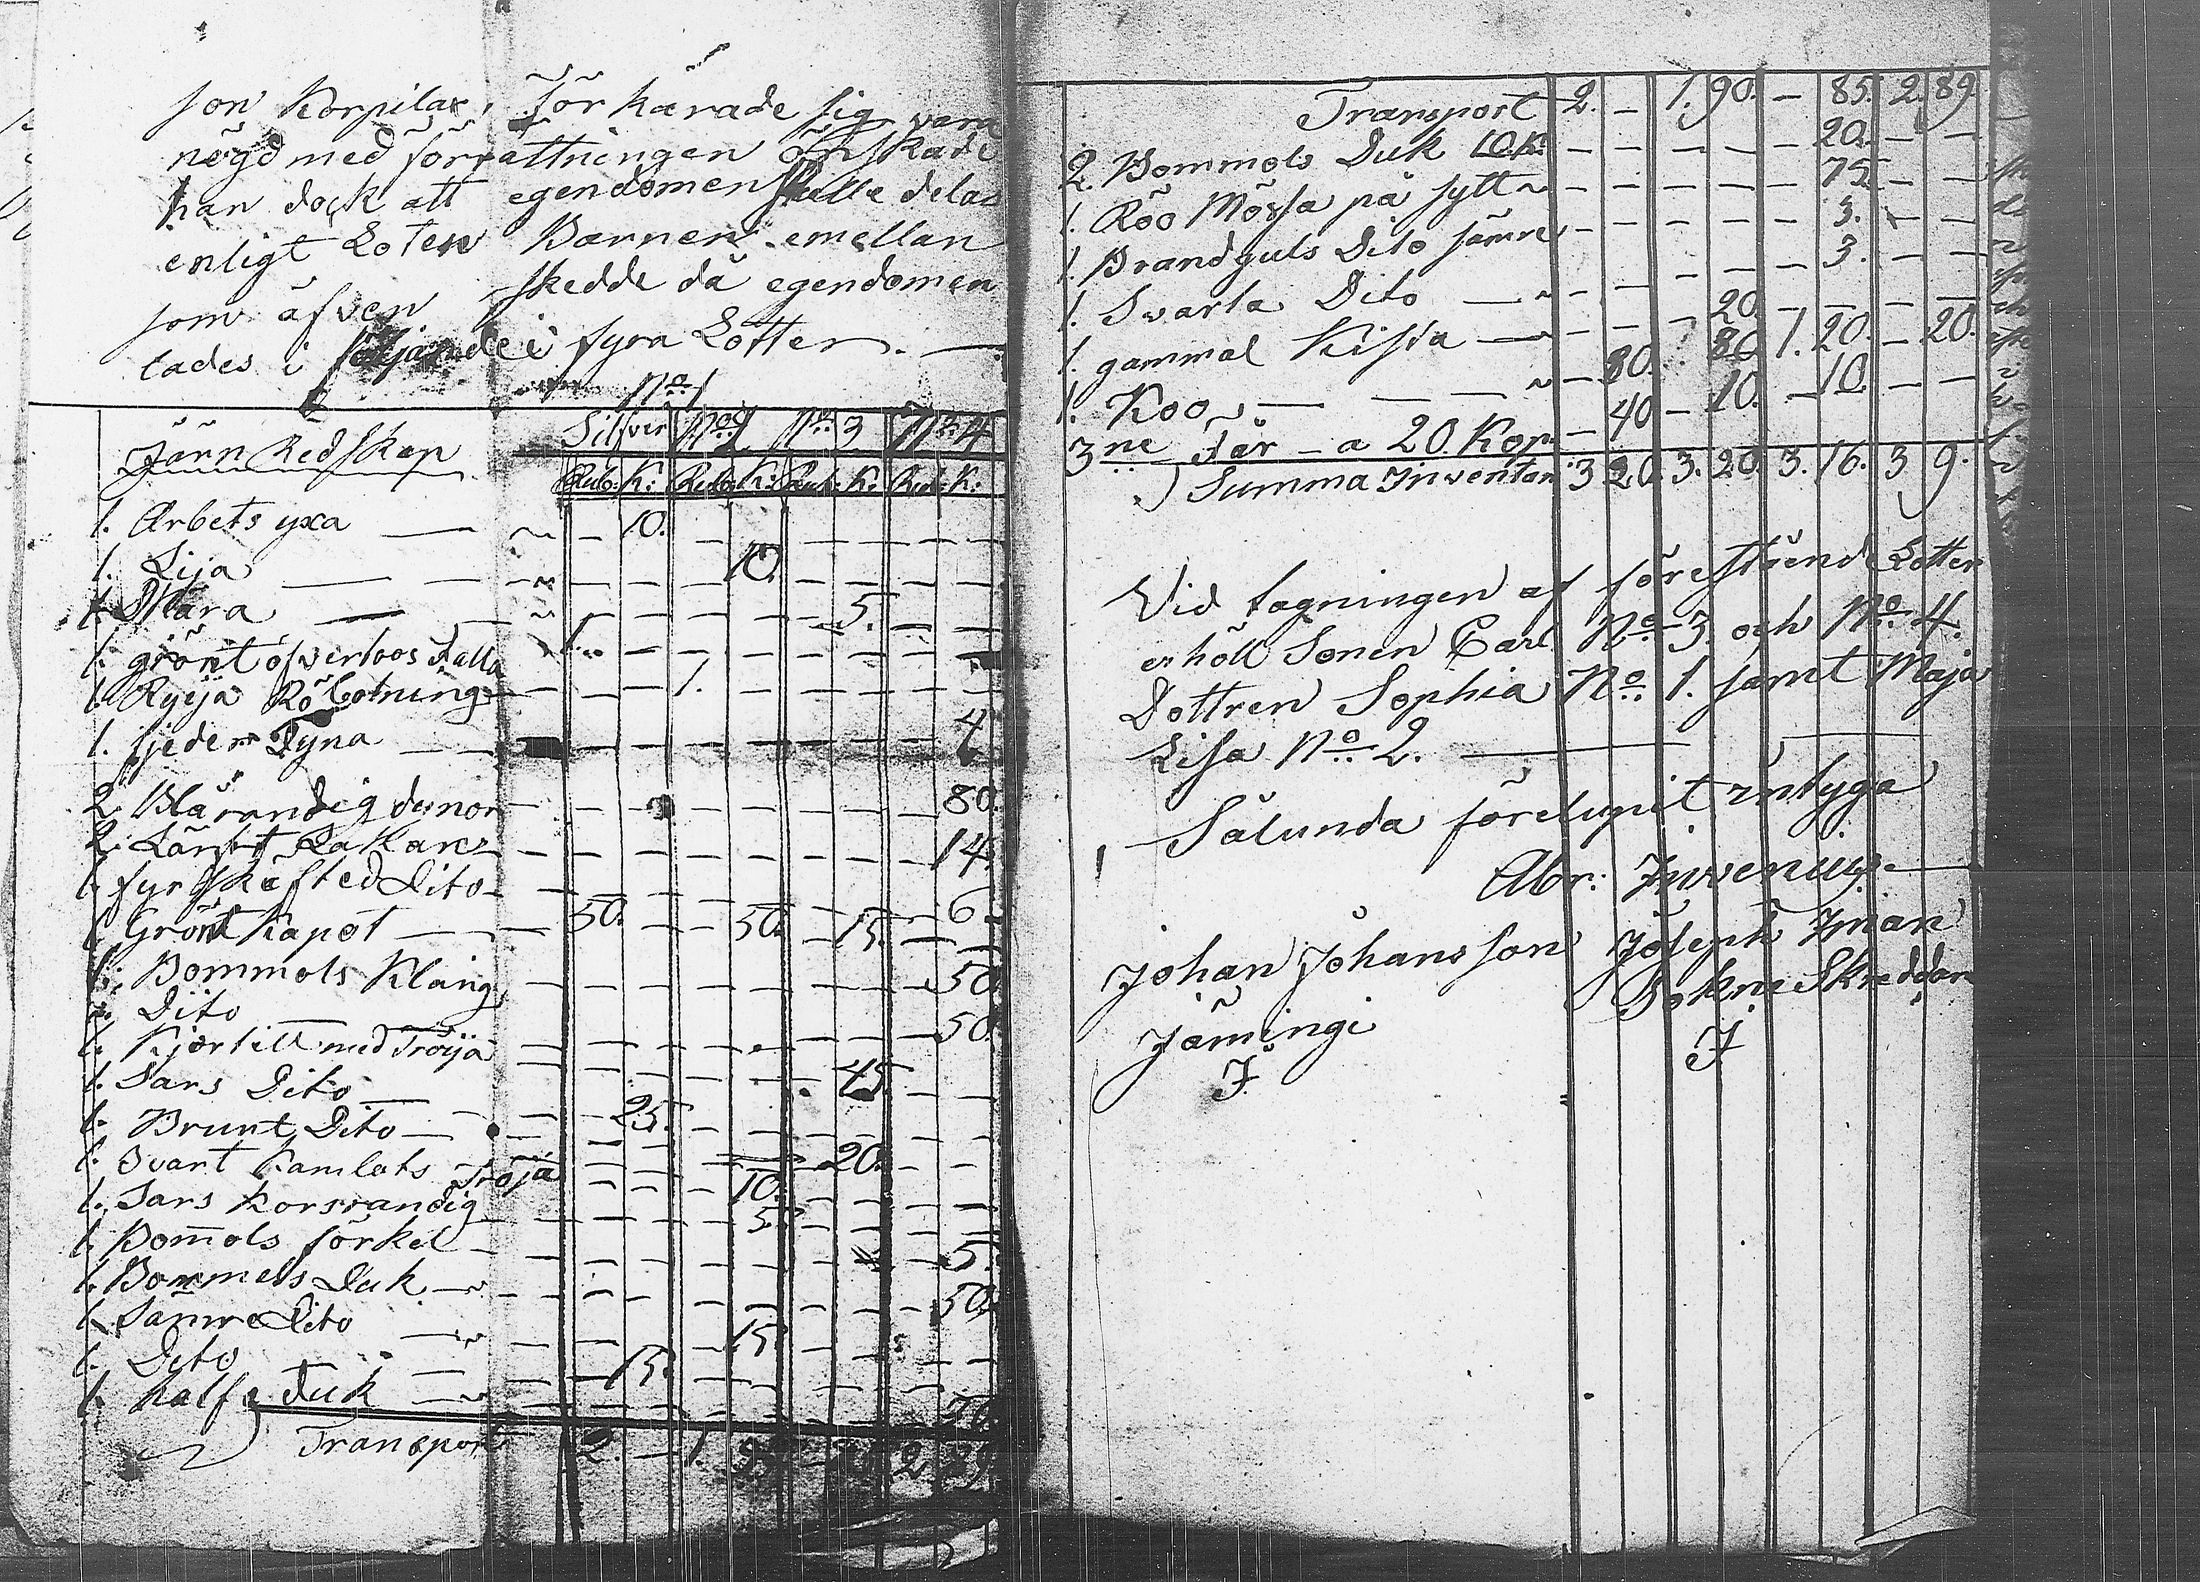 son Korpilax, förkarade sig vara
nögd med förrättningen önskade
han dock att egendomen skulle delas
enligt Loten Barnen emellan
som äfven skedde då egendomen
lades i följande i fyra Lotter. —
Järn Redskap Silfver No 1 No 2 No 3 No 4
Rub: K: Rub: K: Rub: K: Rub: K:
1. Arbets yxa — 10.
1. Lija — 10.
1. Skära — 5.
1. grönt öfvertoos Falla 1.
1. Ryija Rö botning 1.
1. fjeder Dyna — 4
2. Blå randig dynor 80.
2. Lärft Lakan 14.
1. fyrskäfted Dito 6
1. Grönt Kapot 50. 50. 15.
1. Bommols Kläng 50.
1. Dito 50.
1. Kjortill med Tröija
1. Sars Dito — 45.
1. Brunt Dito — 25.
1. Svart Kamlots Tröja 20.
1. Sars Korsrandig 10.
1. Bom̄ols förkel 5
1. Bommols Duk 5.
1. Sämre Dito 50.
1. Dito 15.
1. half Duk 15.
Transport 2. — 1.
Transport 2. — 1. 90. — 85. 2. 89.
2. Bommols Duk 10.K: 20.
1. Röo Mössa på sytt 75.
1. Brandguls Dito sämre 3.
1. Svarta Dito — 3.
1. gammal Kista — 20.
1. Koo — 80. 80 1. 20. — 20.
3ne Får — a 20 Kop — 40 — 10. — 10.
Summa Inventari 3 20. 3. 20. 3. 16. 3 9.
Vid tagningen af föreståend Lotter
erhöll Sonen Carl No 3. och No 4.
Dottren Sophia No 1. samt Maja
Lisa No 2. —
Sålunda förelupit intyga
Abr: Juvenius.
Johan Johansson Joseph Iman
Jämingi Bokni Skreddare
J. J